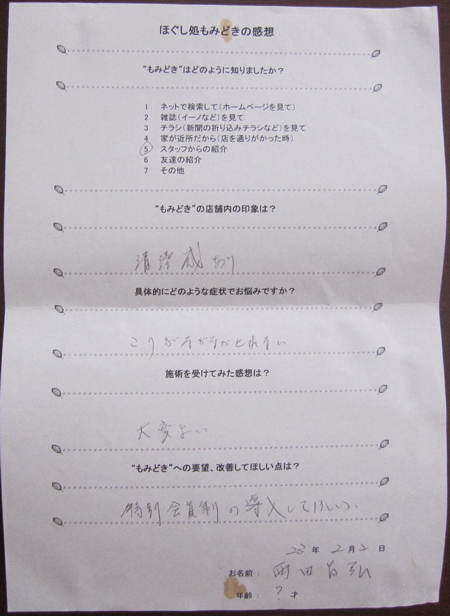 ほぐし処もみどきの感想
"もみどき"はどのように知りましたか？
1 ネットで検索して(ホームページを見て)
2 雑誌(イーノなど)を見て
3 チラシ(新聞の折り込みチラシなど)を見て
4 家が近所だから(店を通りがかった時)
5 スタッフからの紹介
6 友達の紹介
7 その他
"もみどき"の店舗内の印象は？
清潔感あり
具体的にどのような症状でお悩みですか？
こりがなかなかとれない
施術を受けてみた感想は？
大変よい
"もみどき"への要望、改善してほしい点は？
特別会員制の導入してほしい
23年 2月2日
お名前：
年齢： ? 才